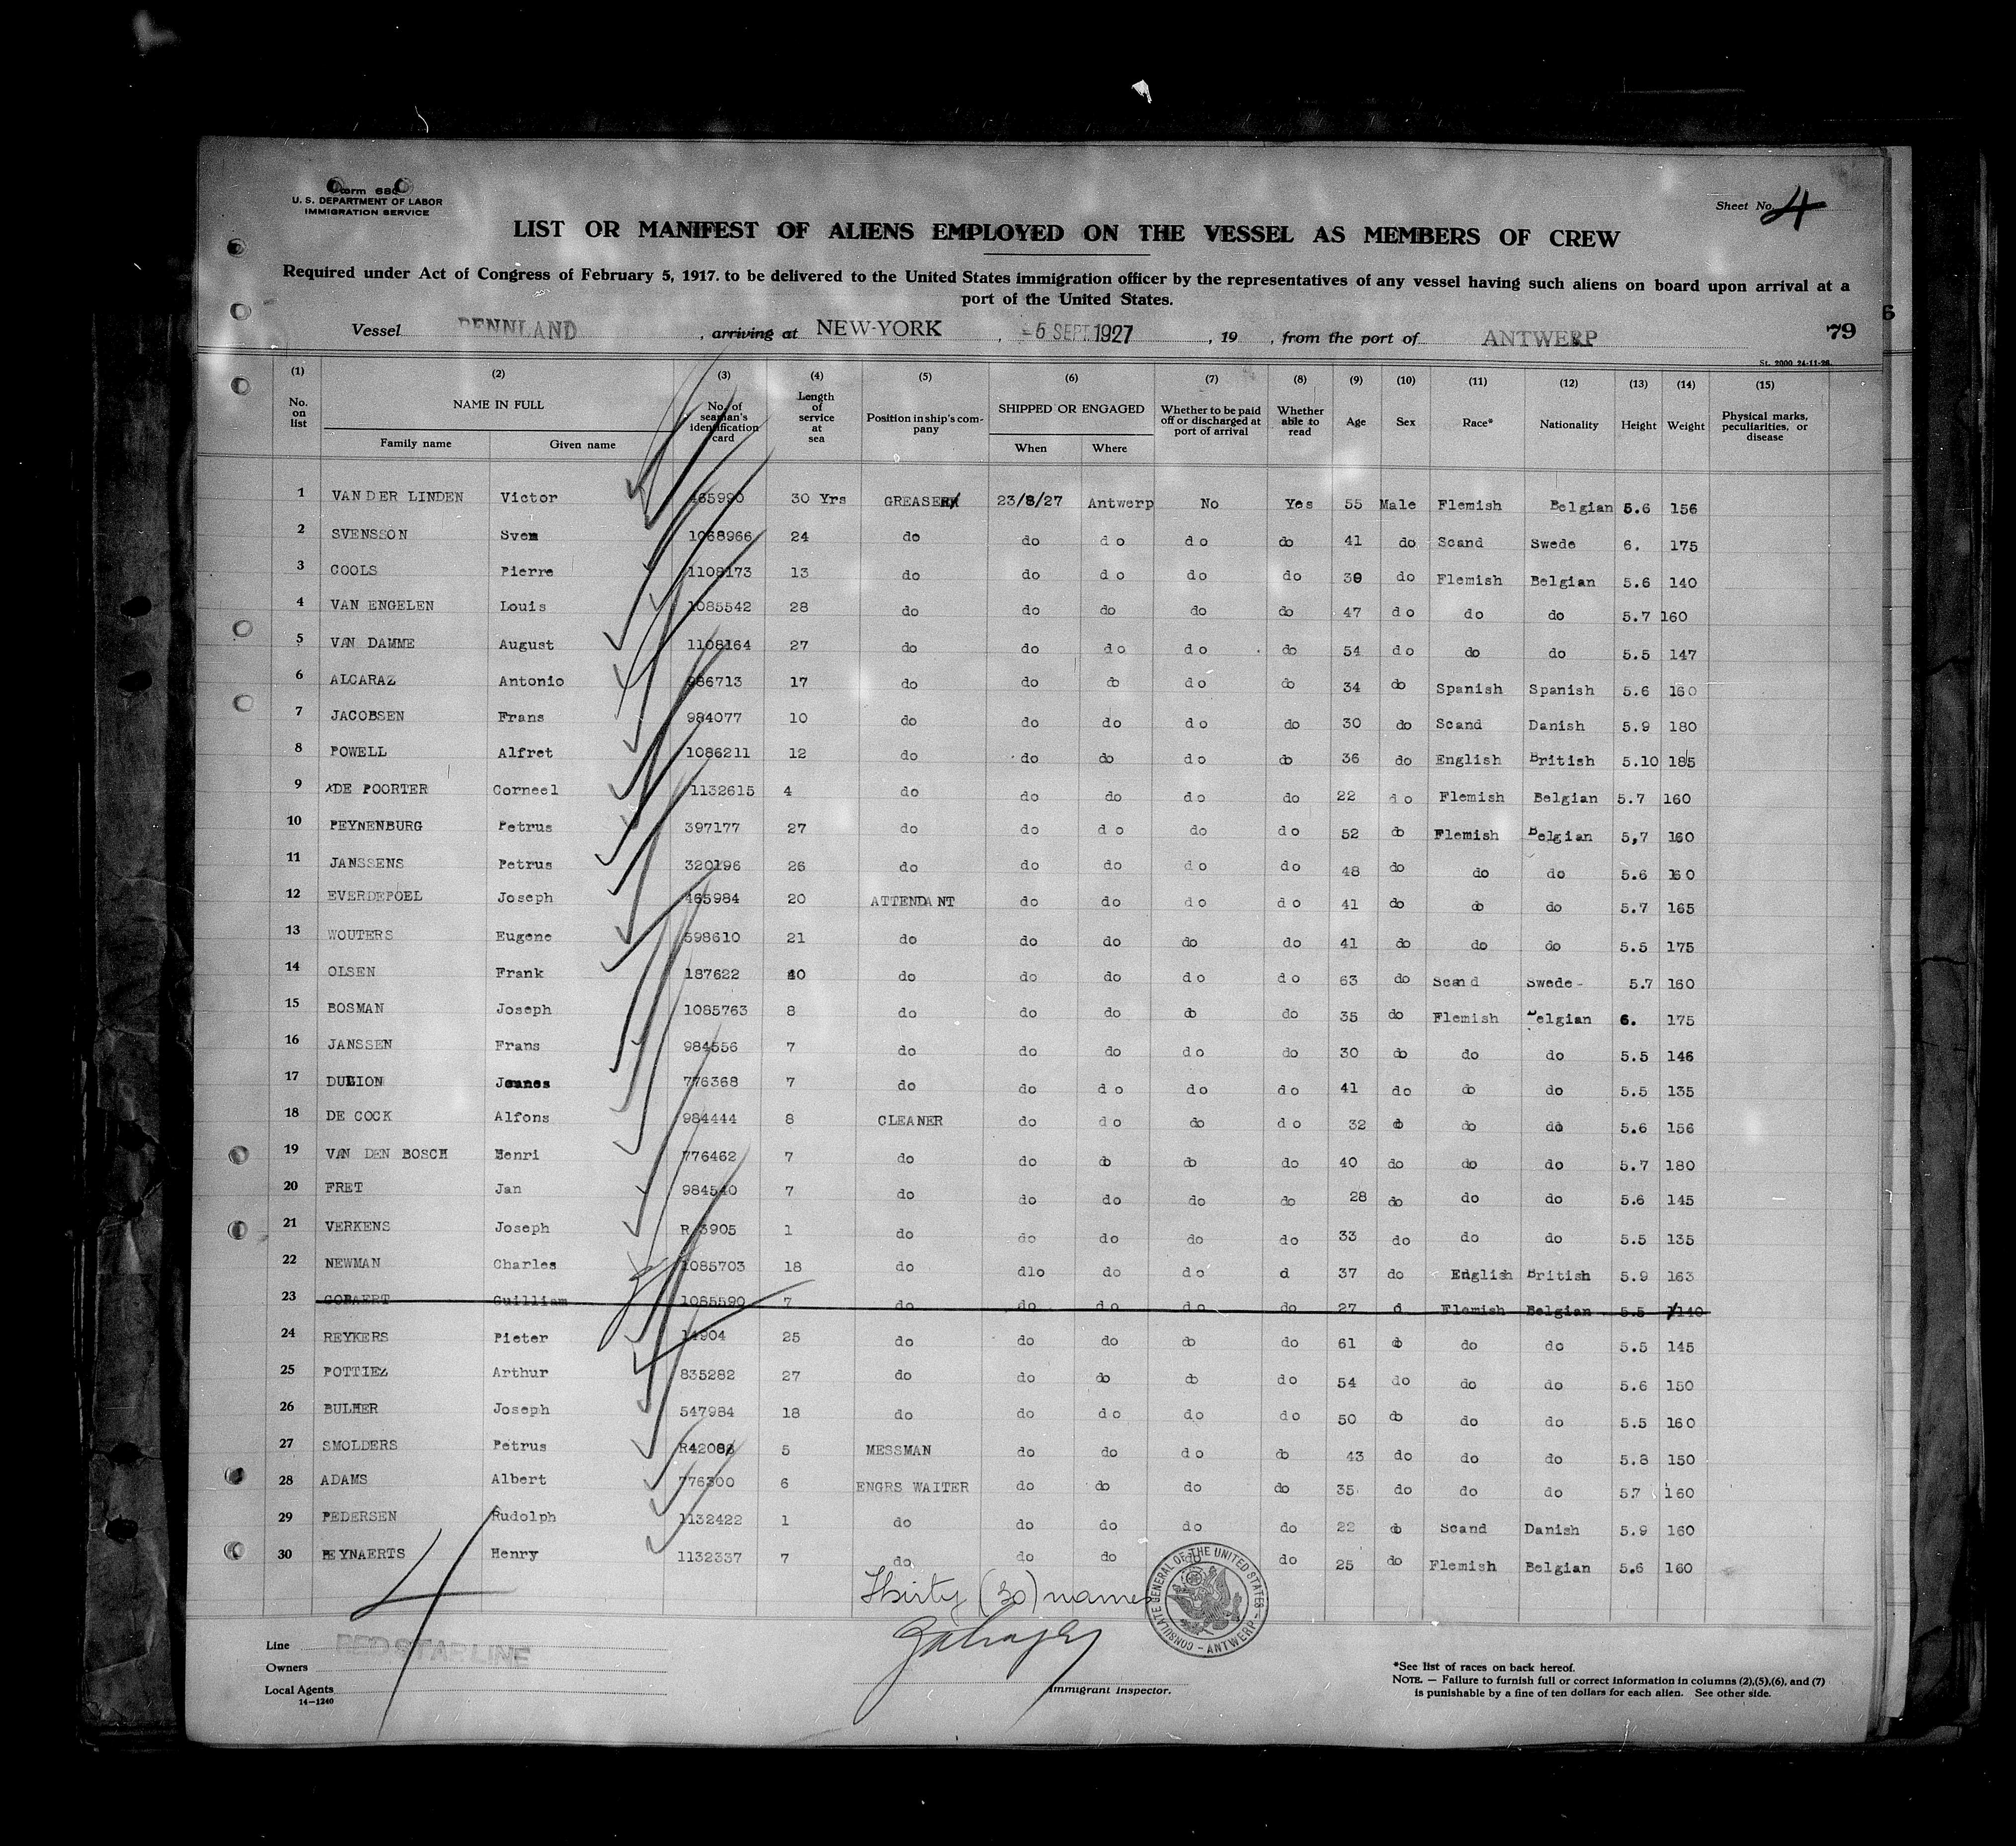 Form 680
U. S. DEPARTMENT OF LABOR
IMMIGRATION SERVICE
Sheet No. 4
LIST OR MANIFEST OF ALIENS EMPLOYED ON THE VESSEL AS MEMBERS OF CREW
Required under Act of Congress of February 5, 1917. to be delivered to the United States immigration officer by the representatives of any vessel having such aliens on board upon arrival at a
port of the United States.
6
Vessel PENNLAND , arriving at NEW-YORK , -5 SEPT.1927 , 19 , from the port of ANTWERP 79
St. 2000 24-11-26.
(1) (2) (3) (4) (5) (6) (7) (8) (9) (10) (11) (12) (13) (14) (15)
No. on list NAME IN FULL Family name Given name No. of seaman's identification card Length of service at sea Position in ship's company SHIPPED OR ENGAGED When Where Whether to be paid off or discharged at port of arrival Whether able to read Age Sex Race* Nationality Height Weight Physical marks, peculiarities, or disease
1 VAN DER LINDEN Victor 465990 30 Yrs GREASER 23/8/27 Antwerp No Yes 55 Male Flemish Belgian 5.6 156
2 SVENSSON Sven 1068966 24 do do do do do 41 do Scand Swede 6. 175
3 COOLS Pierre 1108173 13 do do do do do 39 do Flemish Belgian 5.6 140
4 VAN ENGELEN Louis 1085542 28 do do do do do 47 do do do 5.7 160
5 VAN DAMME August 1108164 27 do do do do do 54 do do do 5.5 147
6 ALCARAZ Antonio 986713 17 do do do do do 34 do Spanish Spanish 5.6 160
7 JACOBSEN Frans 984077 10 do do do do do 30 do Scand Danish 5.9 180
8 POWELL Alfret 1086211 12 do do do do do 36 do English British 5.10 185
9 DE POORTER Corneel 1132615 4 do do do do do 22 do Flemish Belgian 5.7 160
10 PEYNENBURG Petrus 397177 27 do do do do do 52 do Flemish Belgian 5,7 160
11 JANSSENS Petrus 320196 26 do do do do do 48 do do do 5.6 160
12 EVERDEPOEL Joseph 465984 20 ATTENDANT do do do do 41 do do do 5.7 165
13 WOUTERS Eugene 598610 21 do do do do do 41 do do do 5.5 175
14 OLSEN Frank 187622 40 do do do do do 63 do Scand Swede- 5.7 160
15 BOSMAN Joseph 1085763 8 do do do do do 35 do Flemish Belgian 6. 175
16 JANSSEN Frans 984556 7 do do do do do 30 do do do 5.5 146
17 DUBION 776368 7 do do do do do 41 do do do 5.5 135
18 DE COCK Alfons 984444 8 CLEANER do do do do 32 do do do 5.6 156
19 VAN DEN BOSCH Henri 776462 7 do do do do do 40 do do do 5.7 180
20 FRET Jan 984540 7 do do do do do 28 do do do 5.6 145
21 VERKENS Joseph R 3905 1 do do do do do 33 do do do 5.5 135
22 NEWMAN Charles 1085703 18 do dlo do do d 37 do English British 5.9 163
23 GOBAERT Guilliam 1085590 7 do do do do do 27 d Flemish Belgian 5.5 140
24 REYKERS Pieter 14904 25 do do do do do 61 do do do 5.5 145
25 POTTIEZ Arthur 835282 27 do do do do do 54 do do do 5.6 150
26 BULHER Joseph 547984 18 do do do do do 50 do do do 5.5 160
27 SMOLDERS Petrus 5 MESSMAN do do do do 43 do do do 5.8 150
28 ADAMS Albert 776300 6 ENGRS WAITER do do do do 35 do do do 5.7 160
29 PEDERSEN Rudolph 1132422 1 do do do do do 22 do Scand Danish 5.9 160
30 REYNAERTS Henry 1132337 7 do do do do do 25 do Flemish Belgian 5.6 160
Thirty (30) names
CONSULATE GENERAL OF THE UNITED STATES - ANTWERP -
4
Line RED STAR LINE
Owners
Local Agents
14-1240
Immigrant Inspector.
*See list of races on back hereof.
NOTE. — Failure to furnish full or correct information in columns (2),(5),(6), and (7)
is punishable by a fine of ten dollars for each alien. See other side.